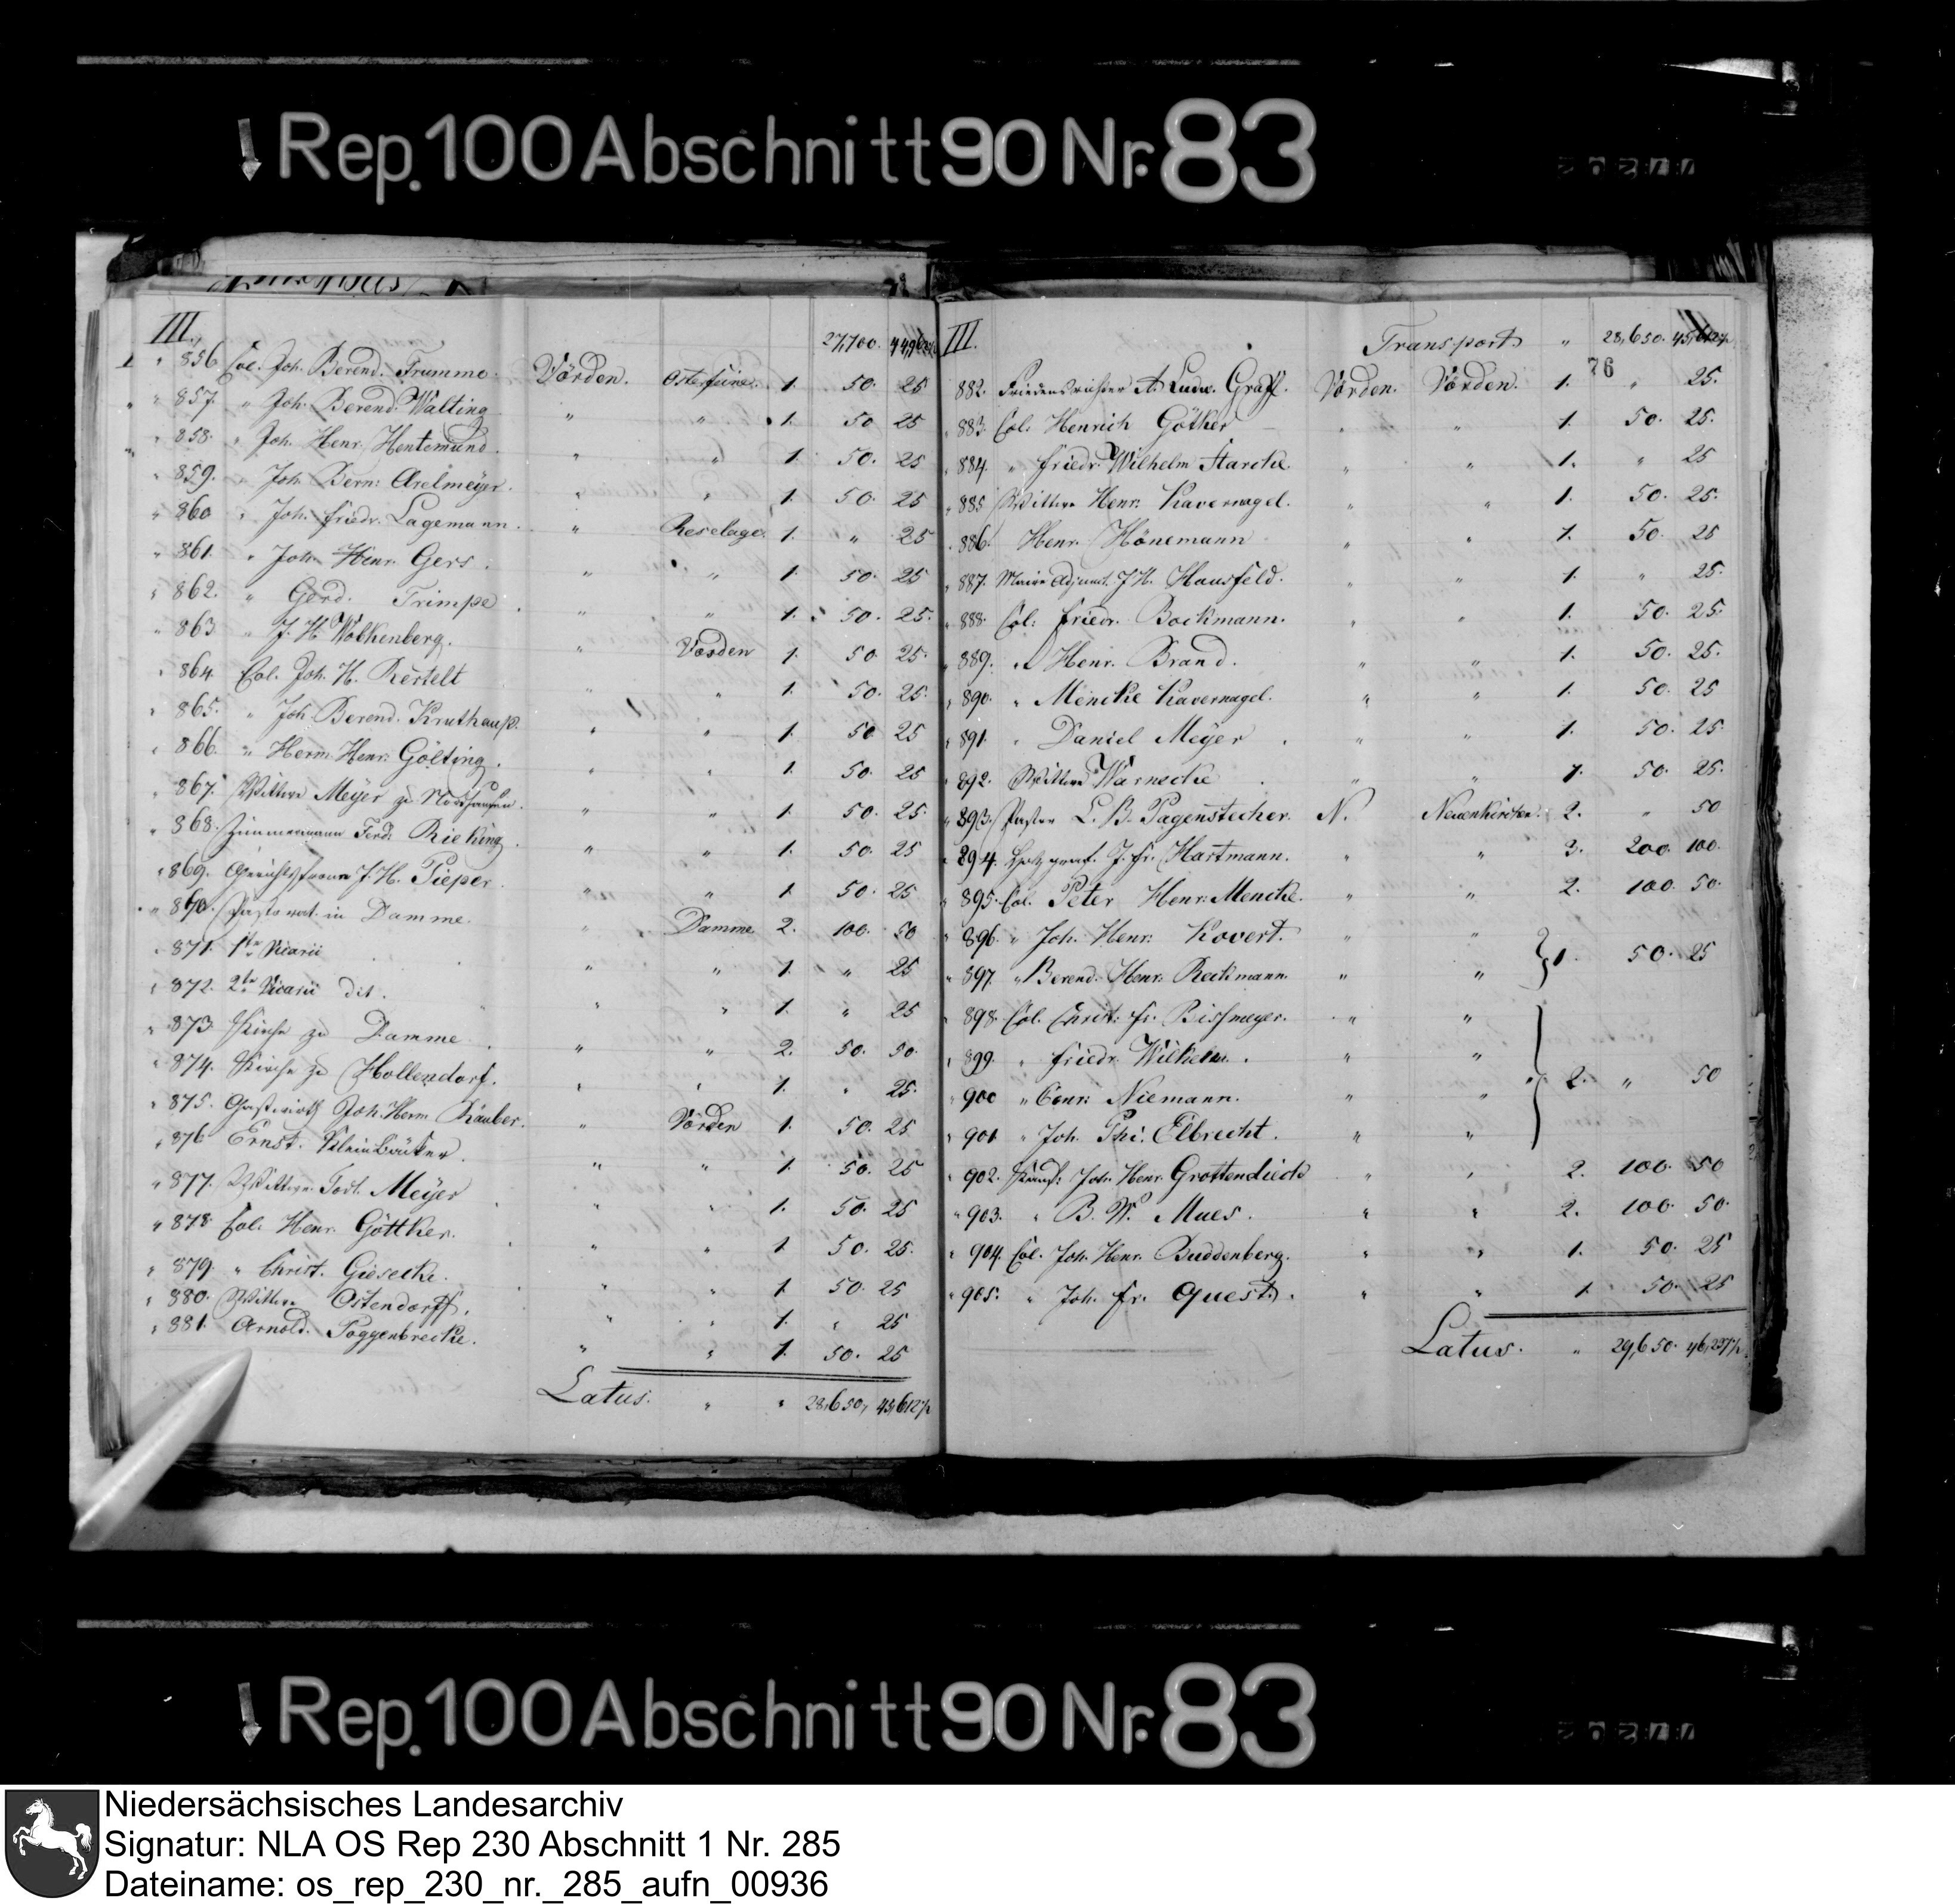 Rep. 100 Abschnitt 90 Nr. 83
III.
27,700.
" 856. Col. Joh. Berend. Trumme Vörden. Osterfeine. 1. 50. 25
" 857. " Joh. Berend. Walting " " 1. 50 25
" 858. " Joh. Henr. Hentemund. " " 1. 50. 25
" 859. " Joh. Bern: Arelmeyer. " " 1. 50. 25
" 860 " Joh. Friedr. Lagemann. " Reselage. 1. " 25
" 861. " Joh. Henr. Gers. " " 1. 50. 25
" 862. " Gerd. Trimpe. " " 1. 50. 25.
" 863 " J. H. Wolkenberg. " Vörden 1. 50. 25.
" 864. Col. Joh. H. Restelt " " 1. 50. 25.
" 865. " Joh. Berend. Kruthaup. " " 1. 50 25
" 866. " Herm. Henr. Gölting. " " 1. 50. 25
" 867. Wittwe Meyer zu " " 1. 50. 25.
" 868. Zimmermann Ferd: Rieking. " " 1. 50. 25
" 869. J. H. Pieper. " " 1. 50. 25
" 870. Pastorat in Damme. " Damme 2. 100. 50
" 871. 1te Vicarii " " 1. " 25
" 872. 2te Vicarii dit. " " 1. " 25
" 873. Kirche zu Damme. " " 2. 50. 50.
" 874. Kirche zu Hollendorf. " " 1. " 25.
" 875. Gastwirth Joh. Herm. Räuber. " Vörden 1. 50. 25
" 876 Ernst. Kleinbäuker. " " 1. 50. 25
" 877. Wittwe Meyer " " 1. 50. 25
" 878. Col. Henr. Göttker. " " 1. 50. 25.
" 879. " Christ. Giesecke. " " 1. 50. 25
" 880. Wittwe Ostendorff. " " 1. " 25
" 881. Arnold. Poggenbrecke. " " 1. 50. 25
Latus. " " 28,650, 45,612½
III. Transport " 28,650. 45,612½
76
882. Friedensrichter A. Ludw. Graff. Vörden. Vörden. 1. " 25.
" 883. Col. Henrich Götker " " 1. 50. 25.
" 884. " Friedr. Wilhelm Starcke. " " 1. " 25
" 885 Wittwe Henr: Kavernagel. " " 1. 50. 25.
" 886. Henr. Hönemann " " 1. 50. 25
" 887. Maire Adjunct. J. H. Hausfeld. " " 1. " 25.
" 888. Col. Friedr. Bockmann. " " 1. 50. 25.
" 889. " Henr. Brand. " " 1. 50. 25.
" 890. " Mencke Kavernagel. " " 1. 50. 25
" 891. " Daniel Meyer " " 1. 50. 25.
" 892. Wittwe Warnecke " " 1. 50. 25.
" 893. Pastor L. B. Pagenstecher. N. Neuenkirchen. 2. " 50
" 894. J. Fr. Hartmann. " " 3. 200. 100.
" 895. Col. Peter Henr: Mencke. " " 2. 100. 50.
" 896. " Joh. Henr: Kovert. " "
" 897. " Berend. Henr. Reckmann. " " } 1. 50. 25
" 898. Col. Christ: Fr. Bissmeyer. " "
" 899. " Friedr. Wilhelm. " "
" 900 " Conr: Niemann. " " } 2. " 50
" 901. " Joh. Phi. Elbrecht. " "
" 902. Joh. Henr. Grottendieck " " 2. 100. 50
" 903. " B. W. Maes. " " 2. 100. 50.
" 904. Col. Joh. Henr. Buddenberg. " " 1. 50. 25
" 905. " Joh. Fr. Quest. " " 1. 50. 25
Latus. " 29,650. 46,237½
Rep. 100 Abschnitt 90 Nr. 83
Niedersächsisches Landesarchiv
Signatur: NLA OS Rep 230 Abschnitt 1 Nr. 285
Dateiname: os_rep_230_nr._285_aufn_00936